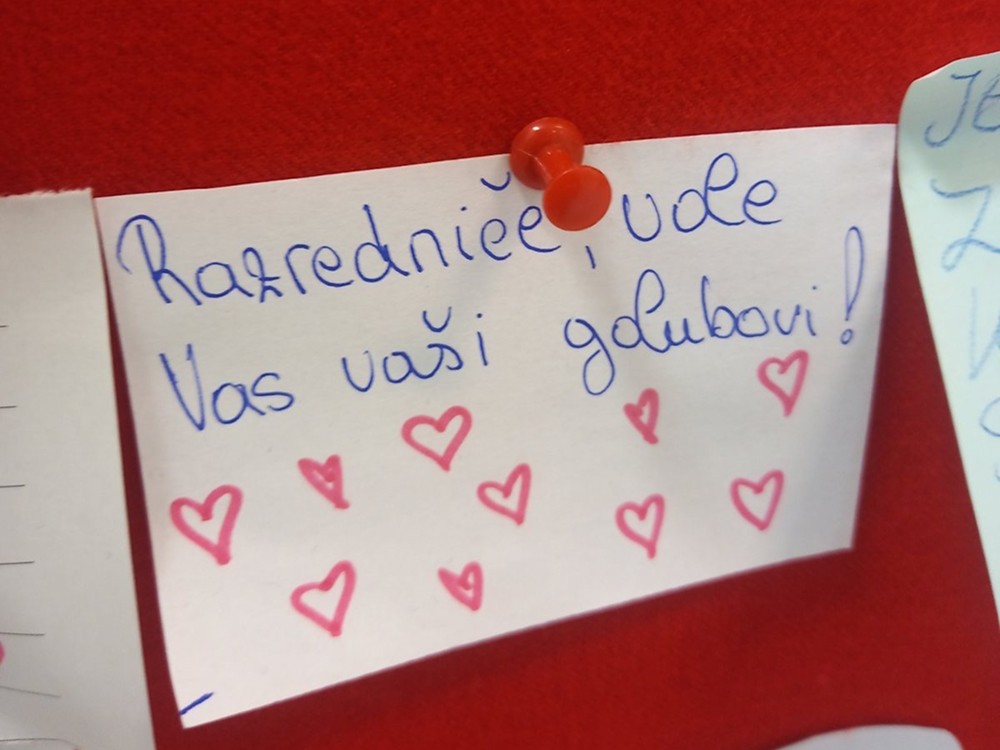 Razredniče, vole
Vas vaši golubovi!
JE